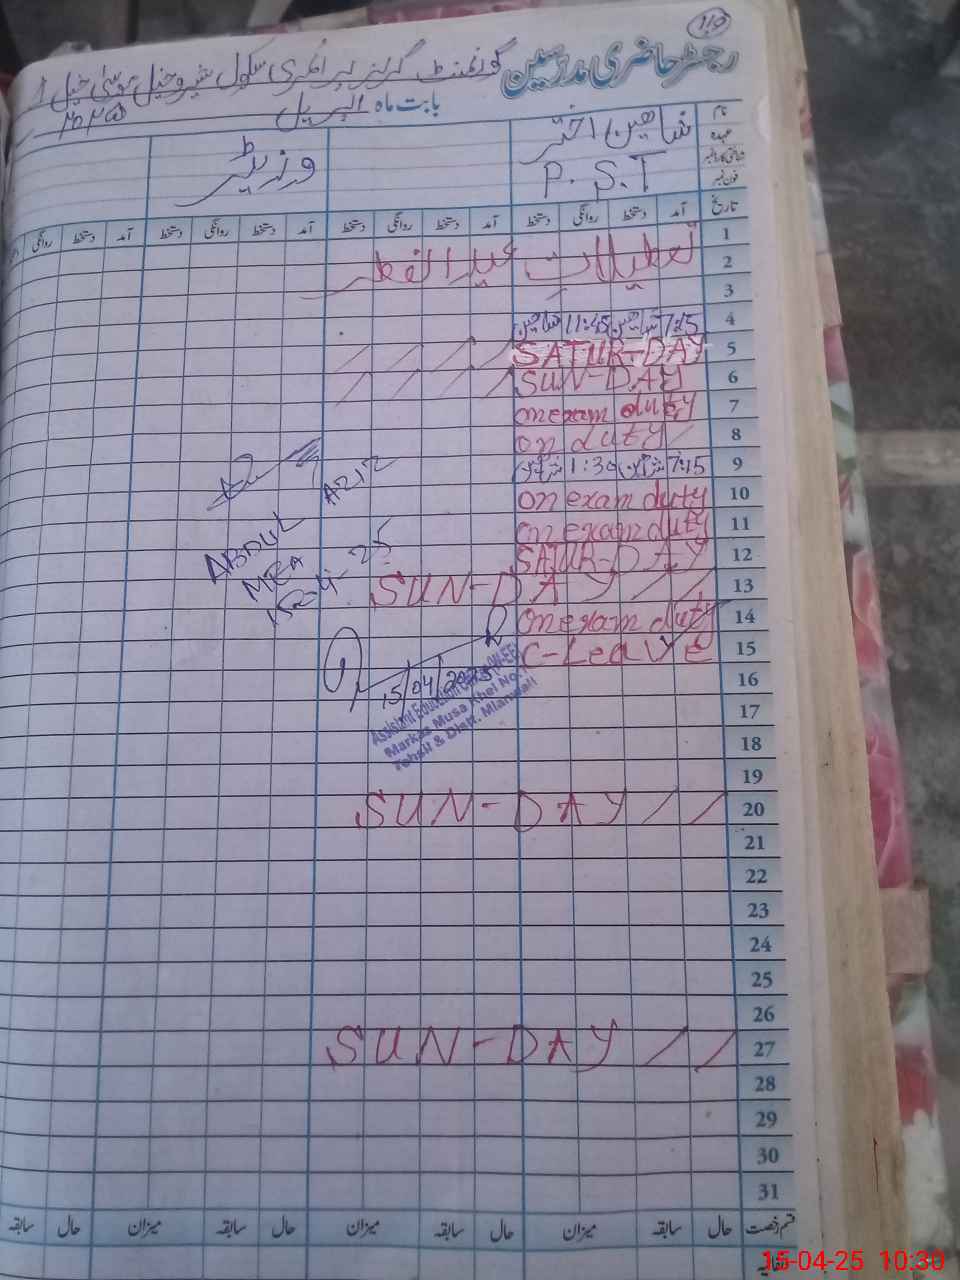 110
رجسٹر حاضری مدرسین گورنمنٹ گرلز پرائمری سکول شیرو خیل موسیٰ خیل
بابت ماہ اپریل ۲۰۲۵
نام شاہین اختر وزیٹر
عہدہ P.S.T
شناختی کارڈ نمبر
فون نمبر
تاریخ آمد دستخط روانگی دستخط آمد دستخط روانگی دستخط آمد دستخط روانگی دستخط آمد دستخط روانگی
1
2 تعطیلات عید الفطر
3
4 7:15 شاہین 11:45 شاہین
5 SATUR-DAY
6 SUN-DAY
7 on exam duty
8 on duty
9 7:15 شاہین 1:30 شاہین
10 on exam duty
11 on exam duty
12 SATUR-DAY
13 SUN-DAY
14 on exam duty
15 C-Leave
ABDUL AZIZ
MEA
15-4-25
15/04/2025
Assistant Education
Markaz Musa Khel No.
Tehsil & Distt. Mianwali
16
17
18
19
20 SUN-DAY
21
22
23
24
25
26
27 SUN-DAY
28
29
30
31
قسم رخصت حال سابقہ میزان حال سابقہ میزان حال سابقہ میزان حال سابقہ
15-04-25 10:30